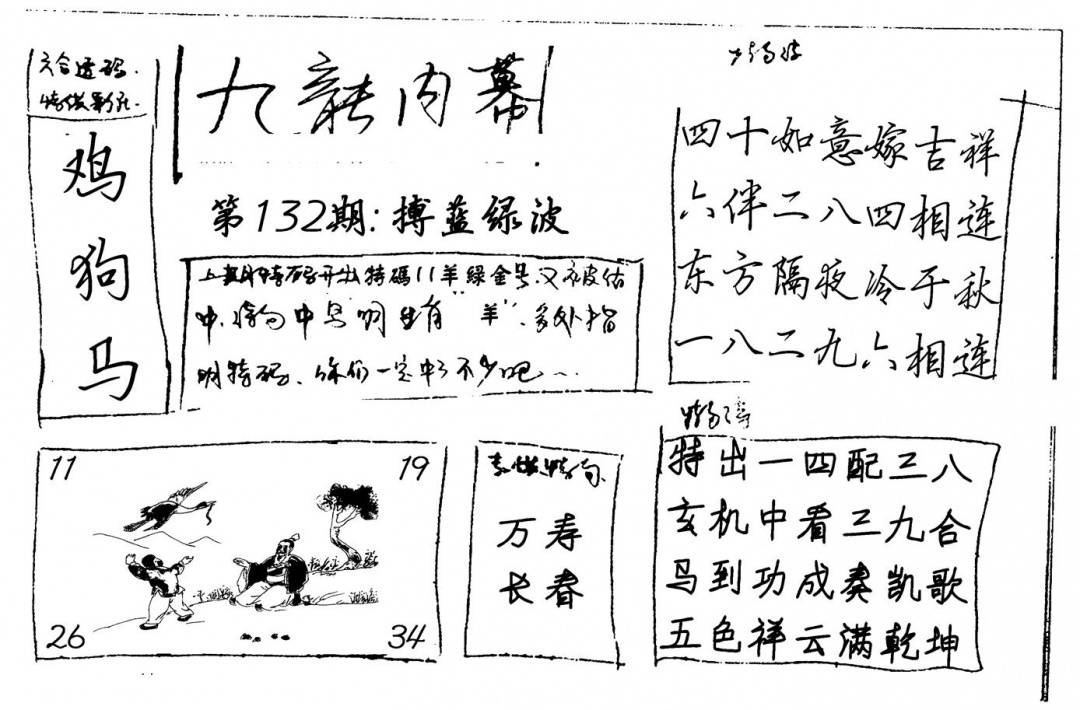 六合透码
鸡
狗
马
九龍内幕
第132期:搏蓝绿波
上期特码开出特碼11羊綠金号又被估
中,特句中马明生肖“羊”,多处指
明特码、你们一定中了不少吧
四十如意嫁吉祥
六伴二八四相连
东方隔夜冷于秋
一八二九六相连
11
19
26
34
万寿
长春
特出一四配三八
玄机中看三九合
马到功成奏凯歌
五色祥云满乾坤